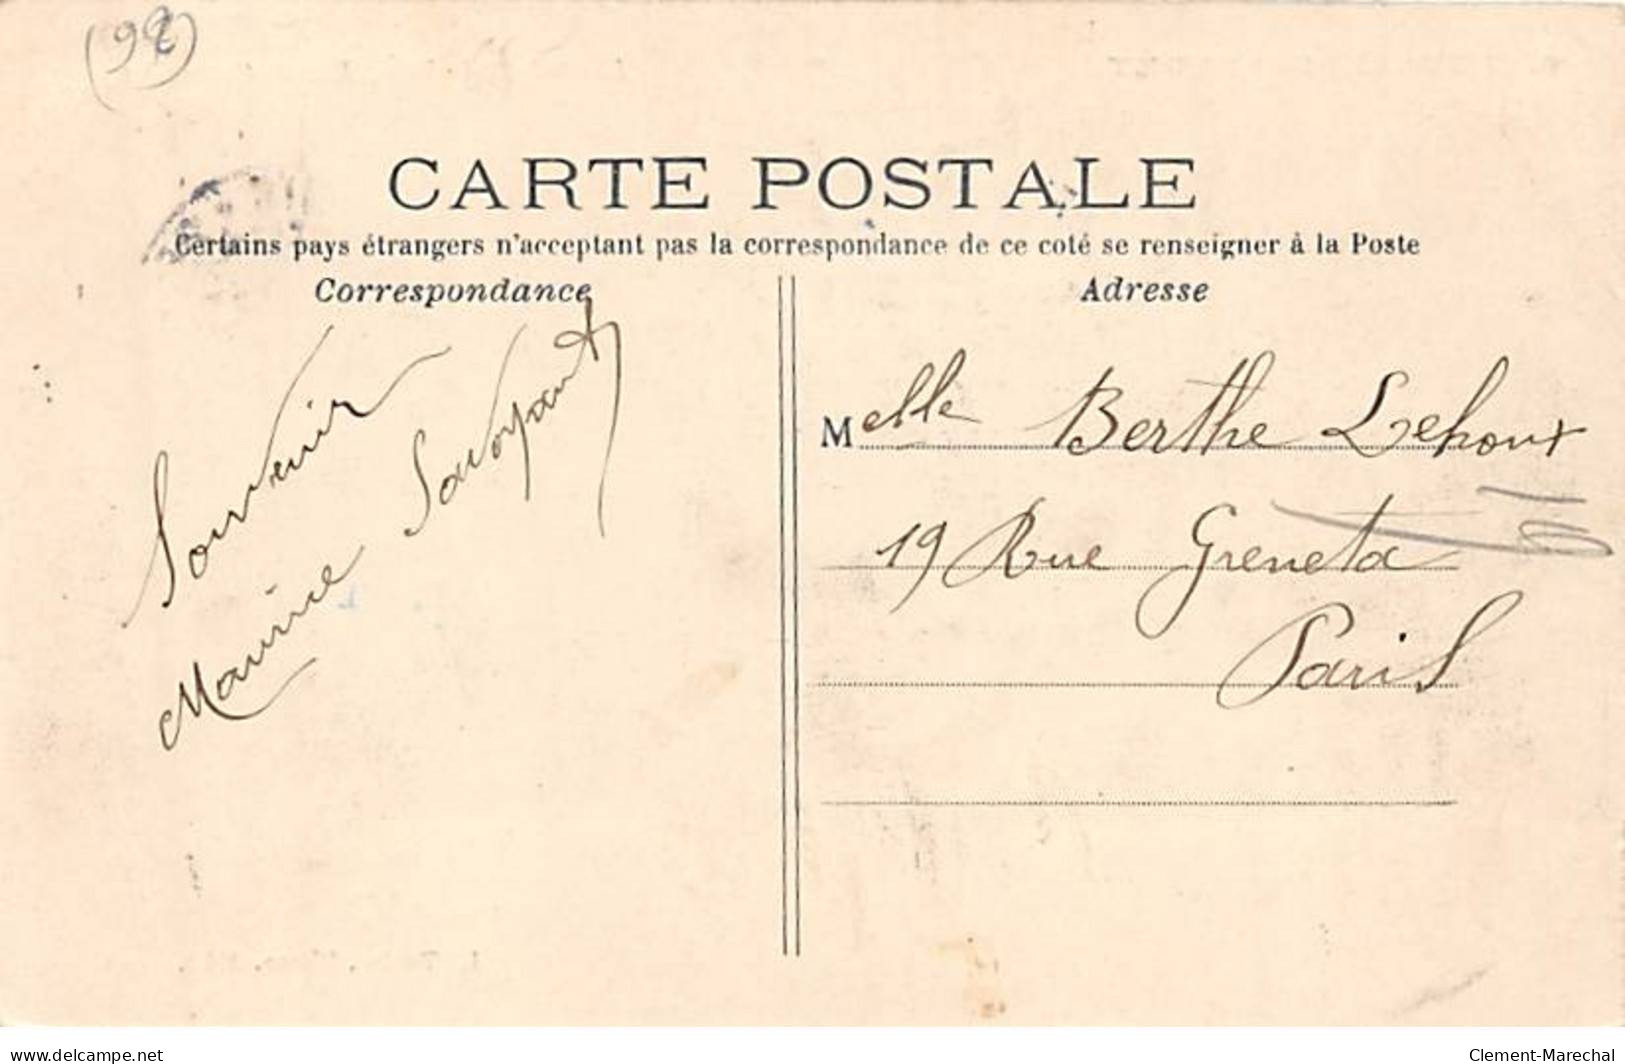 (92)
CARTE POSTALE
Certains pays étrangers n'acceptant pas la correspondance de ce coté se renseigner à la Poste
Correspondance
Souvenir
Maurice Savoyant
Adresse
Melle Berthe Lehoux
19 Rue Greneta
Paris
delcampe.net
Clement-Marechal